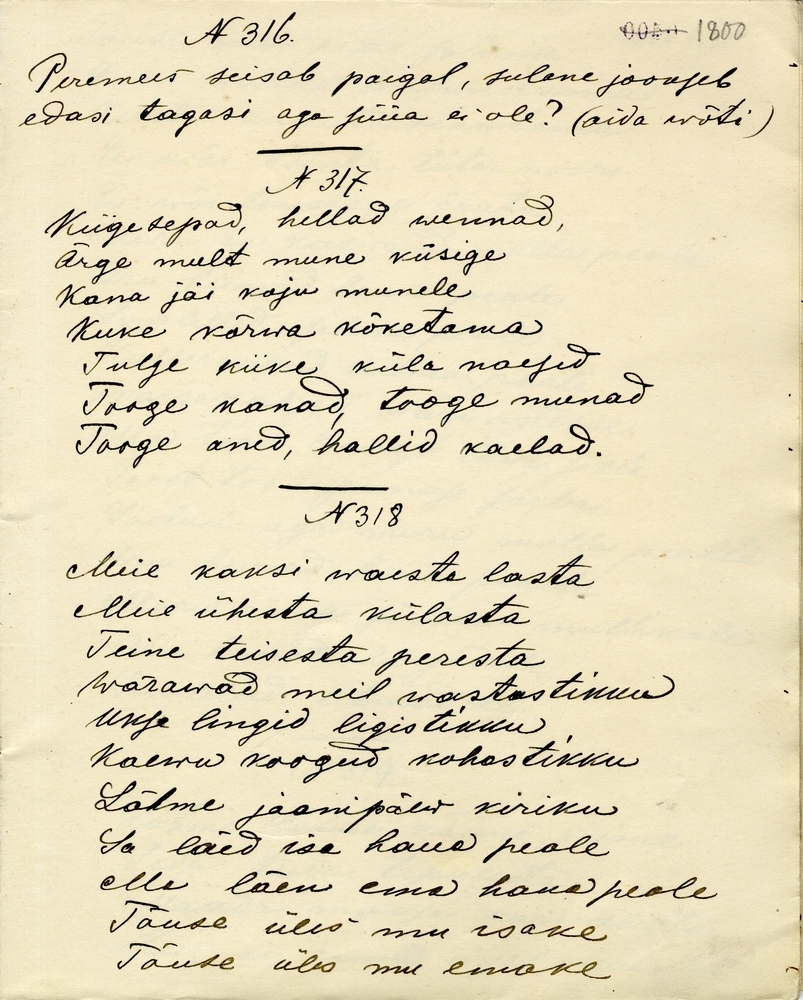 N 316.
1800
Peremees seisab paigal, sulane jookseb
edasi tagasi aga süüa ei ole? (aida wõti)
N 317.
Kiigesepad, hellad wennad,
Ärge mult mune küsige
Kana jäi koju munele
Kuke kõrwa kõketama
Tulge kiike küla naesed
Tooge kanad, tooge munad
Tooge aned, hallid kaelad.
N 318
Meie kaksi waesta lasta
Meie ühesta külasta
Teine teisesta peresta
Wärawad meil wastastikku
Ukse lingid ligistikku
Kaewu koogud kohastikku
Lähme jaanipäew kiriku
Sa läed isa haua peale
Ma läen ema haua peale
Tõuse üles mu isake
Tõuse üles mu emake